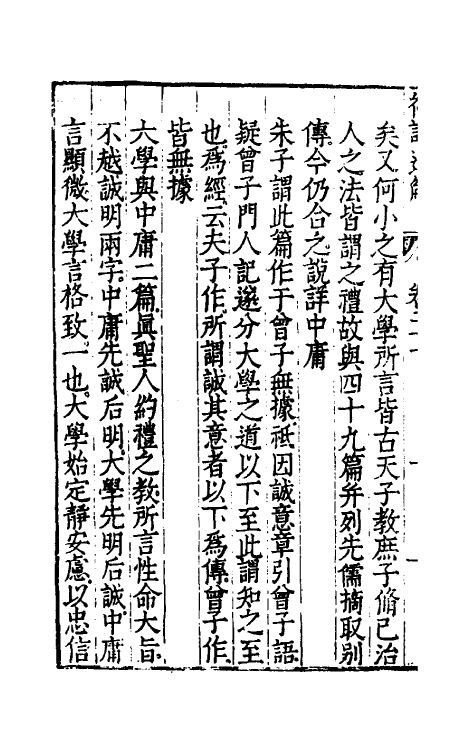 矣又何小之有大學所言皆古天子教庶子脩已治
人之法皆謂之禮故與四十九篇并列先儒摘取别
傳今仍合之說詳中庸
朱子謂此篇作于曾子無據祗因誠意章引曾子語
疑曾子門人記遂分大學之道以下至此謂知之至
也爲經云夫子作所謂誠其意者以下爲傳曾子作
皆無據
大學與中庸二篇眞聖人約禮之教所言性命大旨
不越誠明兩字中庸先誠后明大學先明后誠中庸
言顯微大學言格致一也大學始定靜安慮以忠信